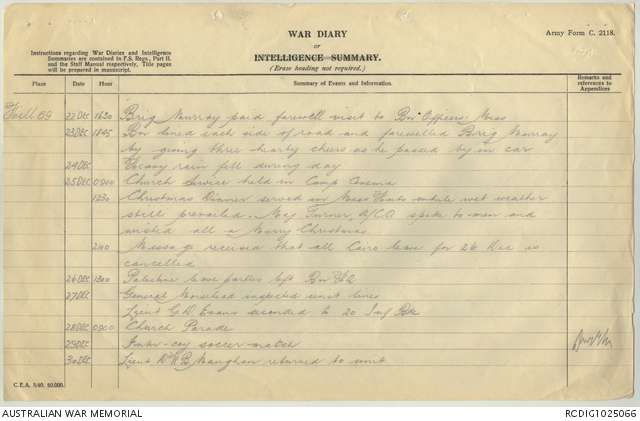 WAR DIARY
Army Form C. 2118.
OF
INTELLIGENCE SUMMARY.
(Erase heading not required.)
Instructions regarding War Diaries and Intelligence
Summaries are contained in F.S. Regs., Part II.
and the Staff Manual respectively. Title pages
will be prepared in manuscript.
Place Date Hour Summary of Events and Information. Remarks and references to Appendices
69 22 DEC 1630 Brig Murray paid farewell visit to Bn Officers Mess
23 DEC 1845 Bn lined each side of road and farewelled Brig Murray
by giving three hearty cheers as he passed by in car
24 DEC Heavy rain fell during day
25 DEC 0900 Church Service held in Camp Cinema
1230 Christmas Dinner served in Mess Huts while wet weather
still prevailed. Maj Turner, A/CO spoke to men and
wished all a Merry Christmas.
Message received that all Cairo leave for 26 Dec is
cancelled
26 DEC 1300 Palestine leave parties left Bn HQ
27 DEC General Morshead inspected unit lines
Lieut G.W. Evans seconded to 20 Inf Bde
28 DEC 0900 Church Parade
29 DEC Inter-coy soccer match
30 DEC Lieut W.B. Maughan returned to unit
C.F.A. 5/40. 50,000.
AUSTRALIAN WAR MEMORIAL
RCDIG1025066